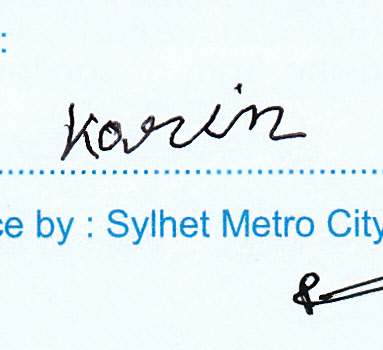 :
Karin
ce by : Sylhet Metro City